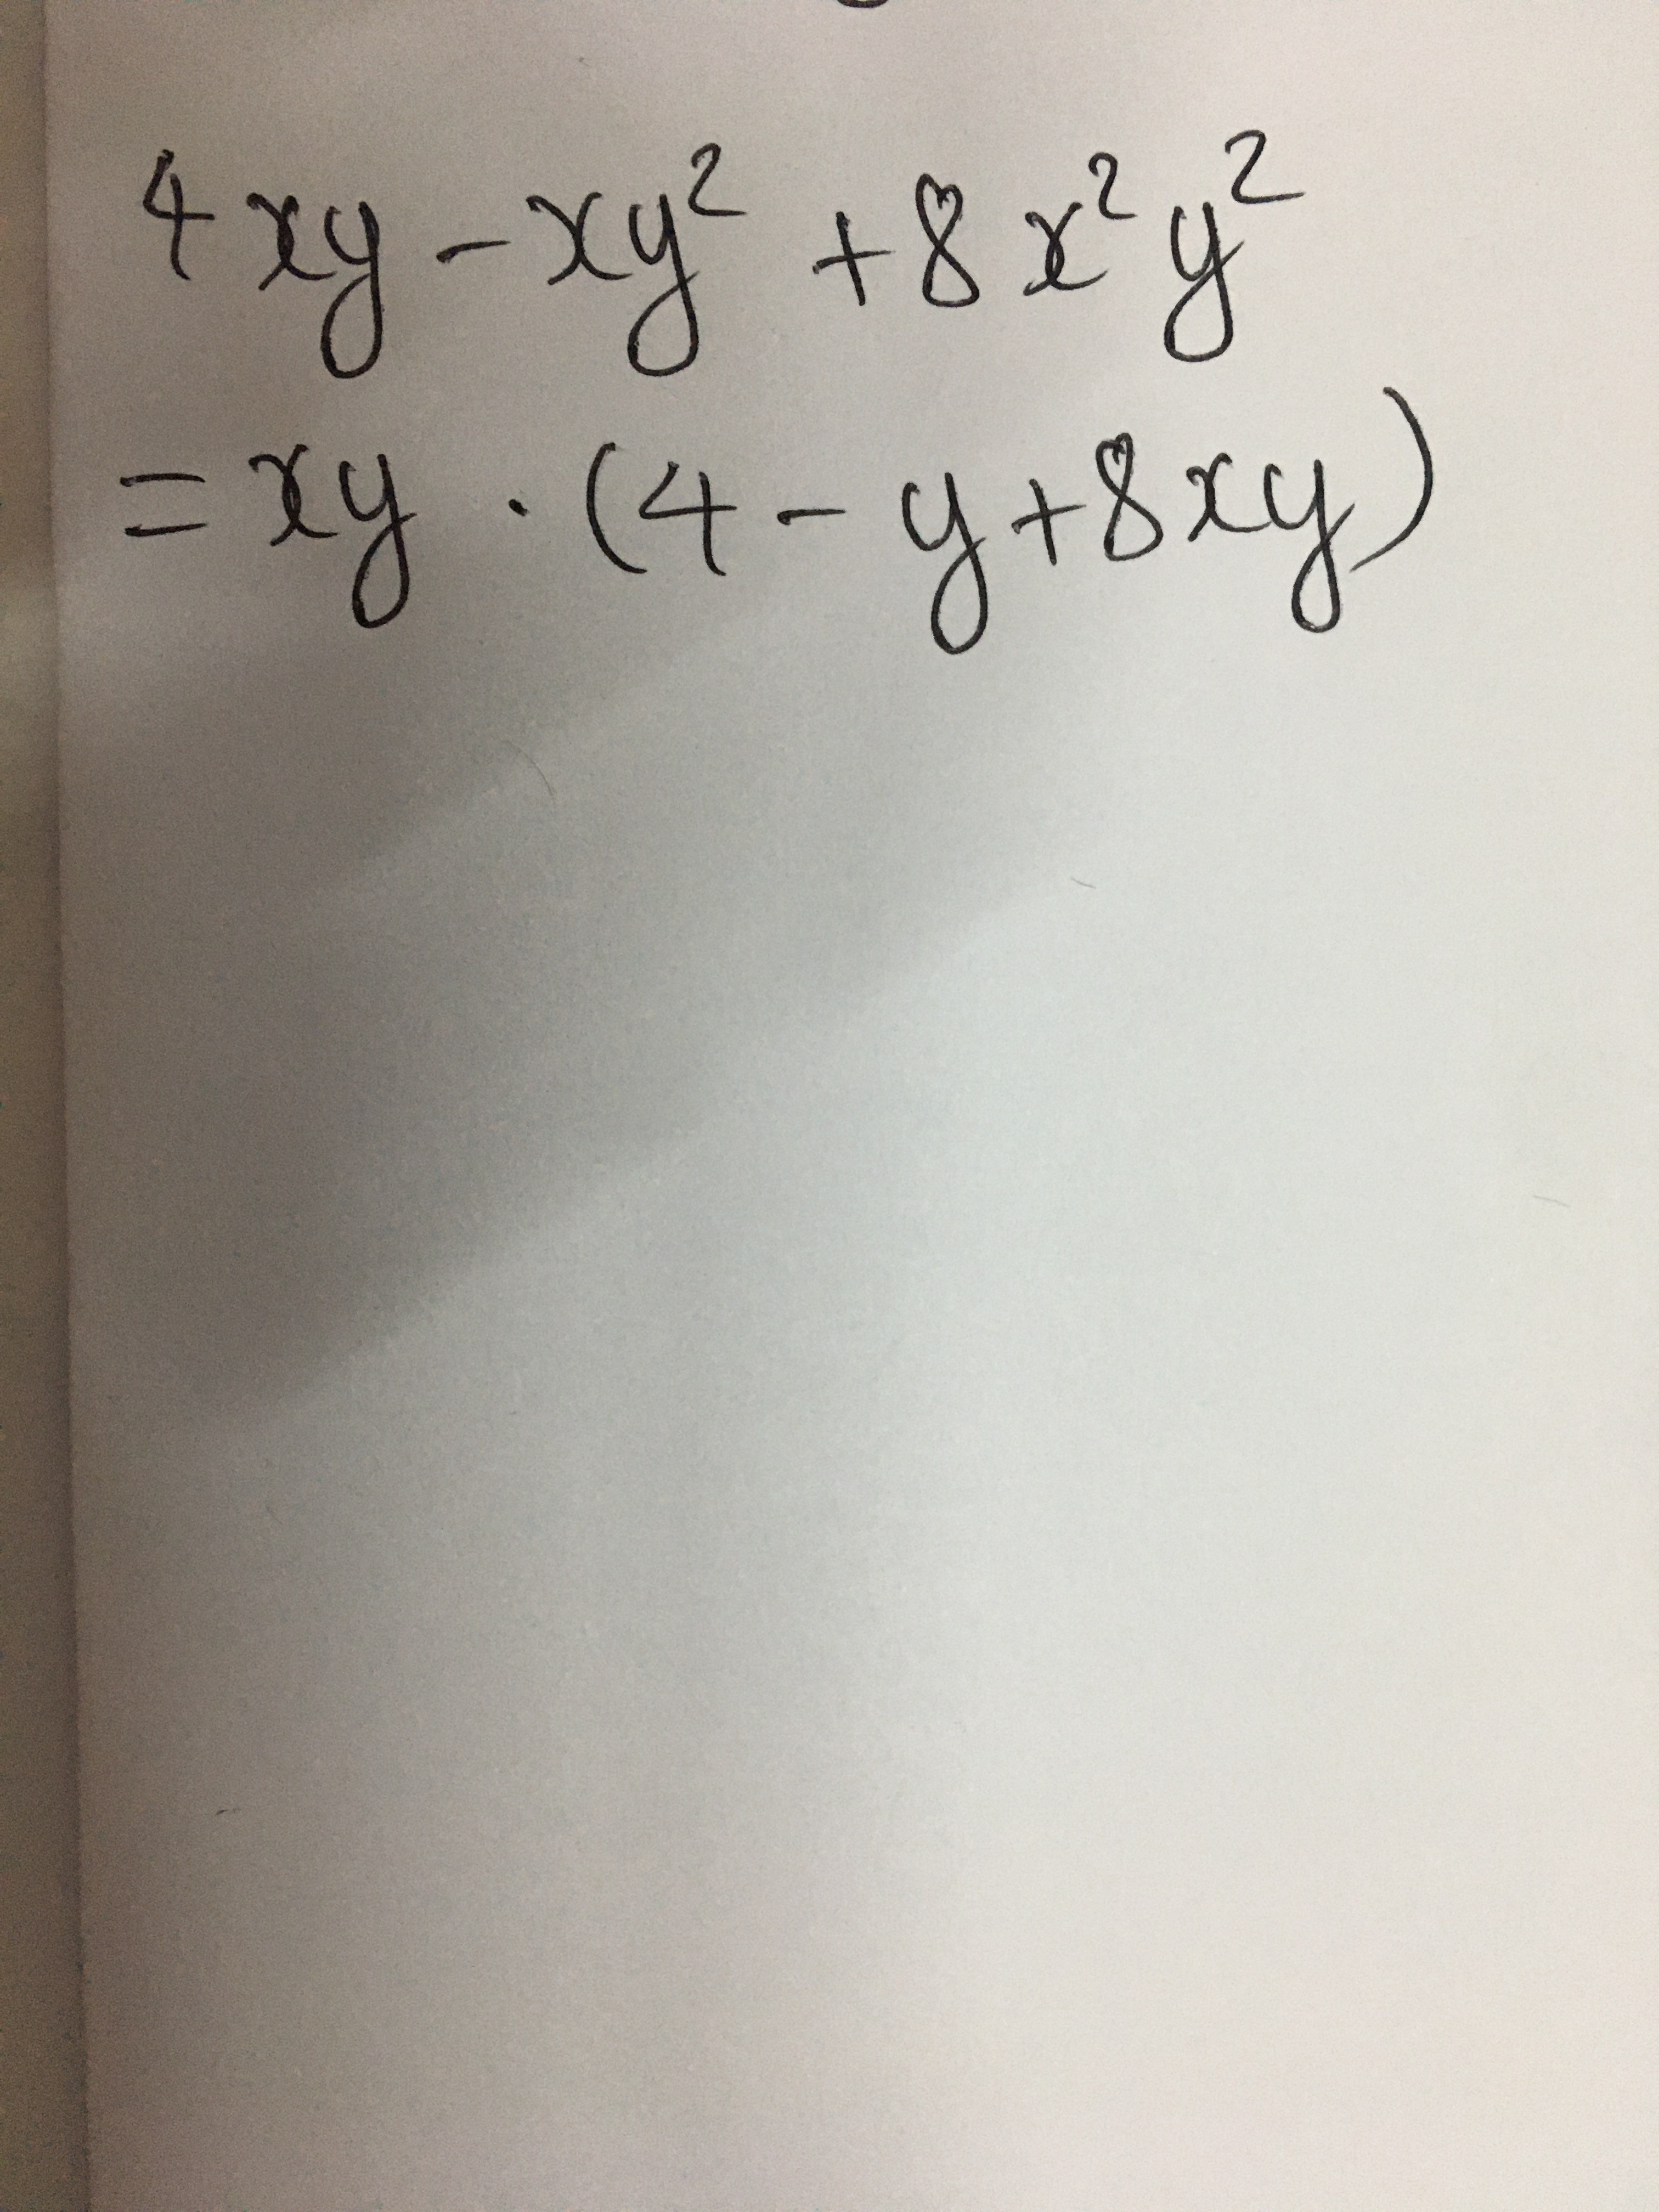 4xy - xy² + 8x²y²
= xy · (4 - y + 8xy)